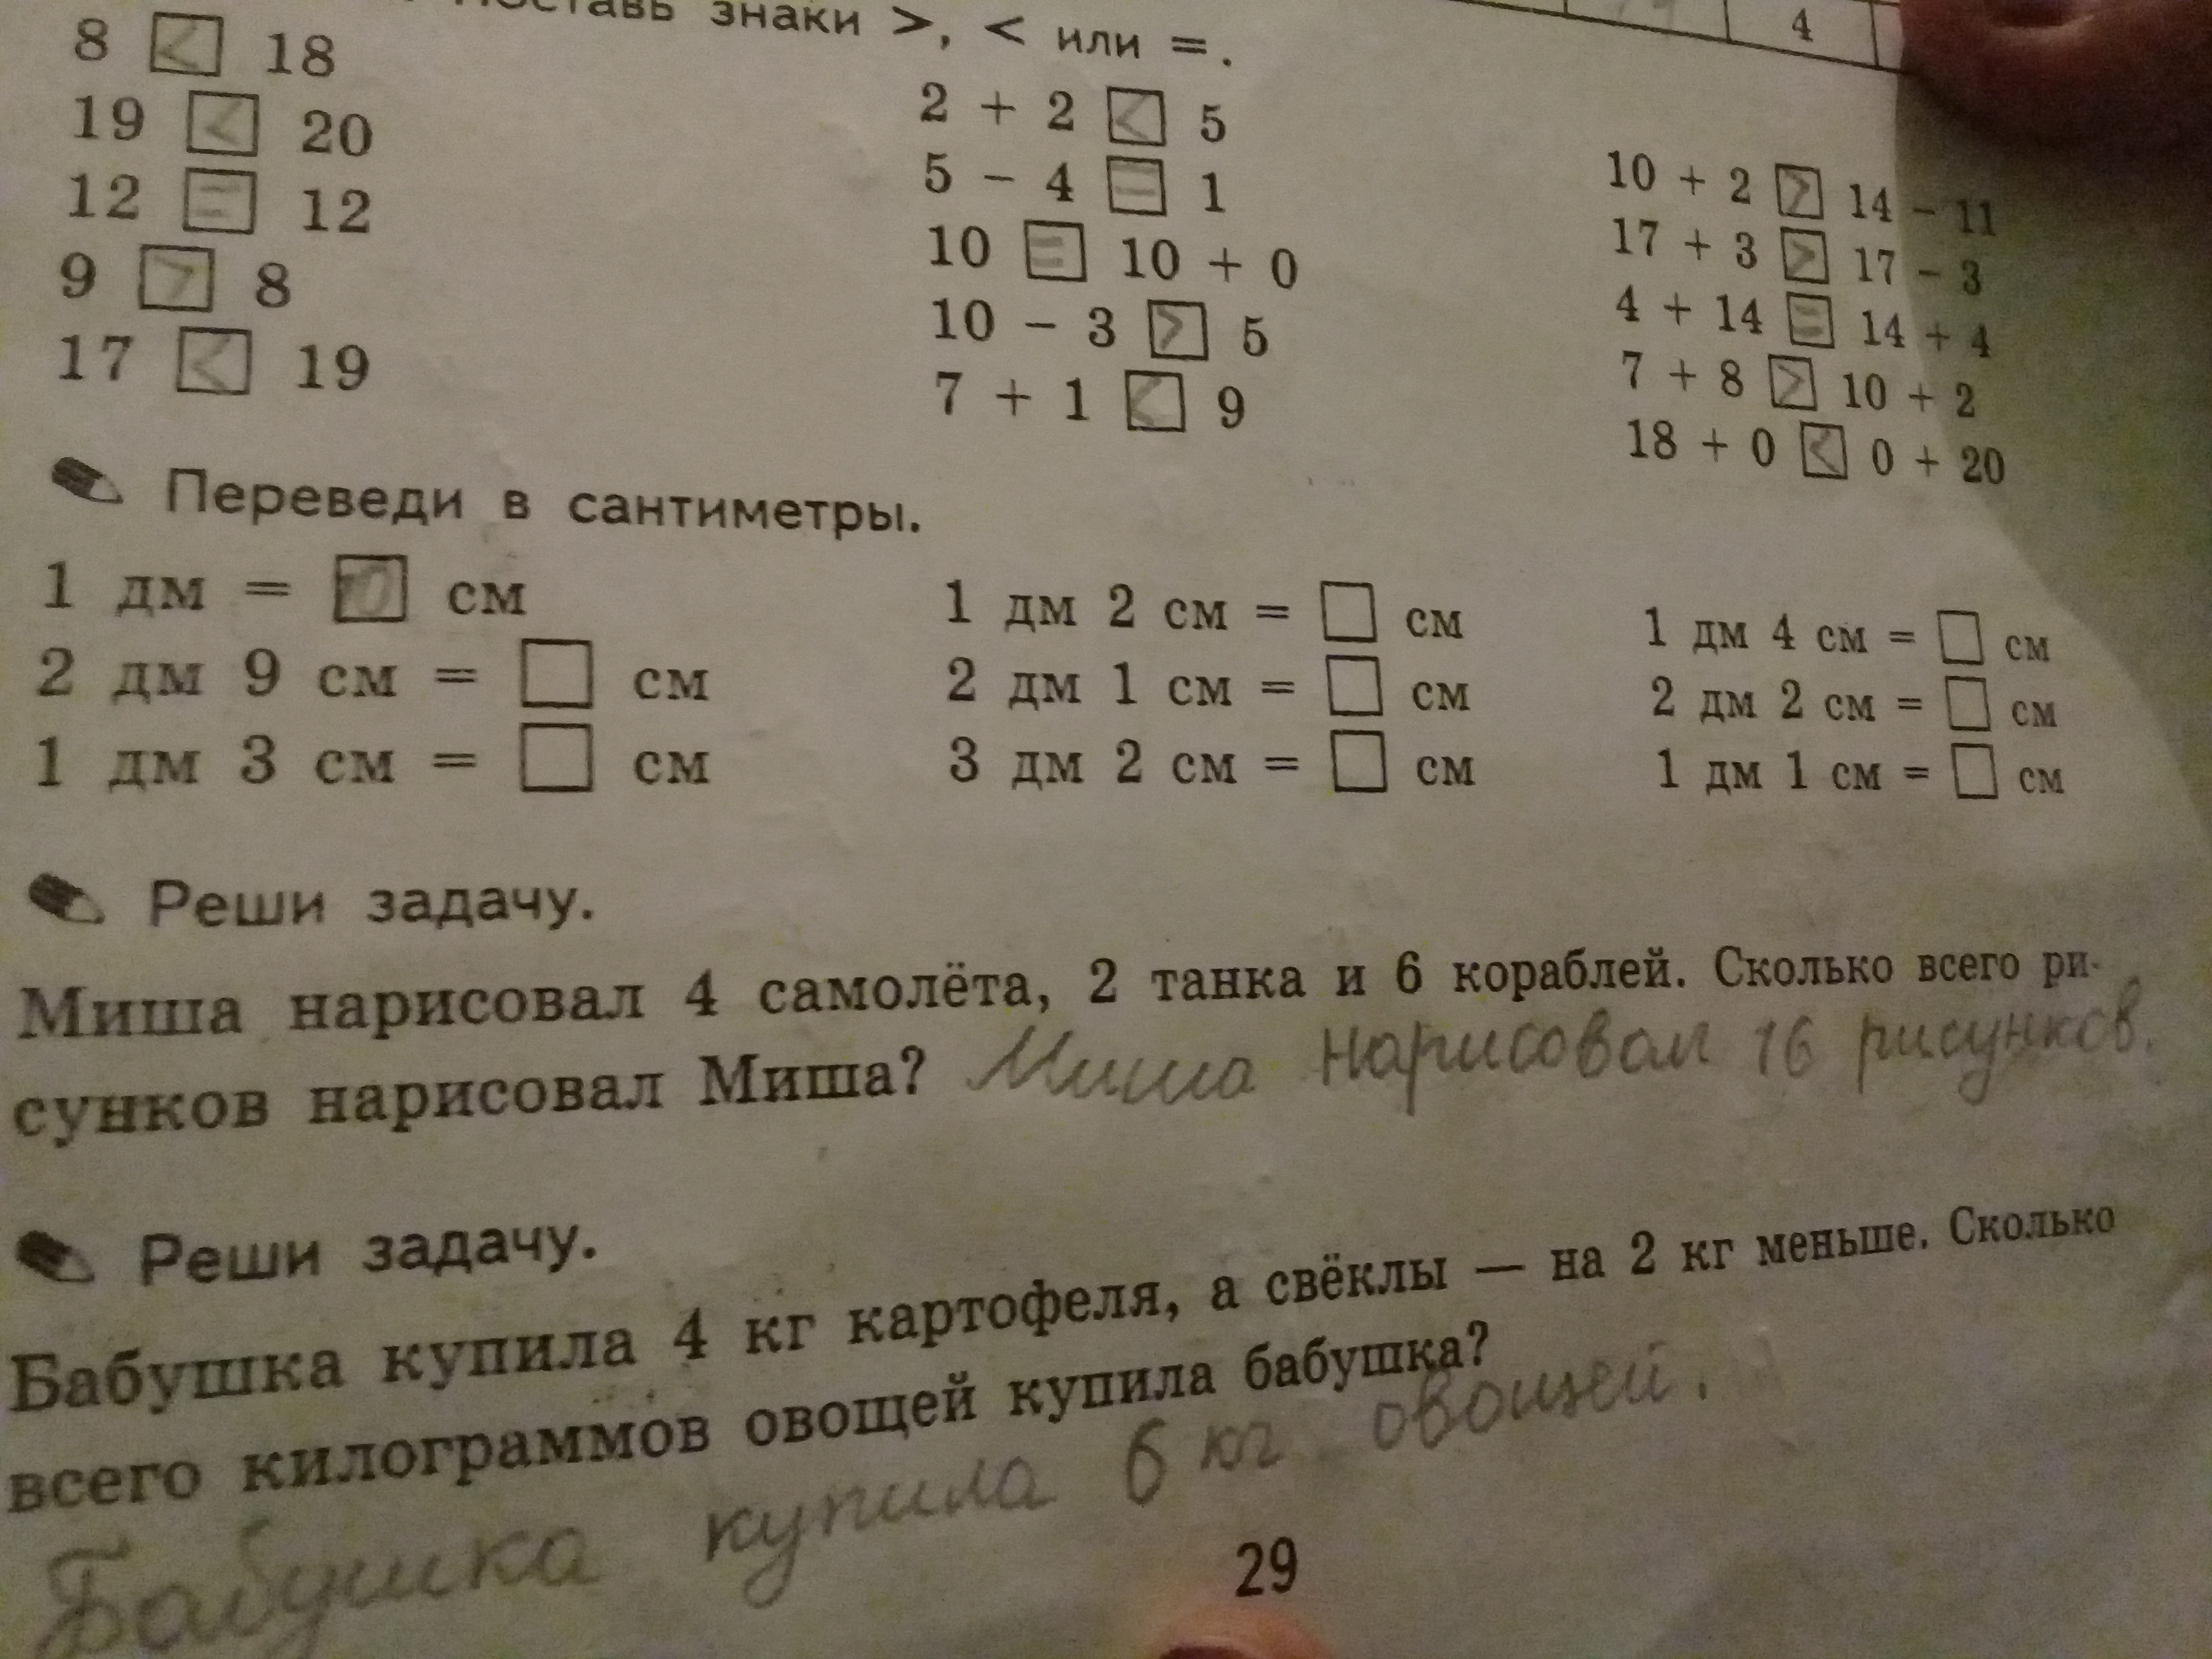 знаки >, < или =.
4
8 < 18
19 < 20
12 = 12
9 > 8
17 < 19
2 + 2 < 5
5 - 4 = 1
10 = 10 + 0
10 - 3 > 5
7 + 1 < 9
10 + 2 > 14 - 11
17 + 3 > 17 - 3
4 + 14 = 14 + 4
7 + 8 > 10 + 2
18 + 0 < 0 + 20
Переведи в сантиметры.
1 дм = 10 см
2 дм 9 см = □ см
1 дм 3 см = □ см
1 дм 2 см = □ см
2 дм 1 см = □ см
3 дм 2 см = □ см
1 дм 4 см = □ см
2 дм 2 см = □ см
1 дм 1 см = □ см
Реши задачу.
Миша нарисовал 4 самолёта, 2 танка и 6 кораблей. Сколько всего ри-
сунков нарисовал Миша? Миша нарисовал 16 рисунков.
Реши задачу.
Бабушка купила 4 кг картофеля, а свёклы — на 2 кг меньше. Сколько
всего килограммов овощей купила бабушка?
Бабушка купила 6 кг овощей.
29